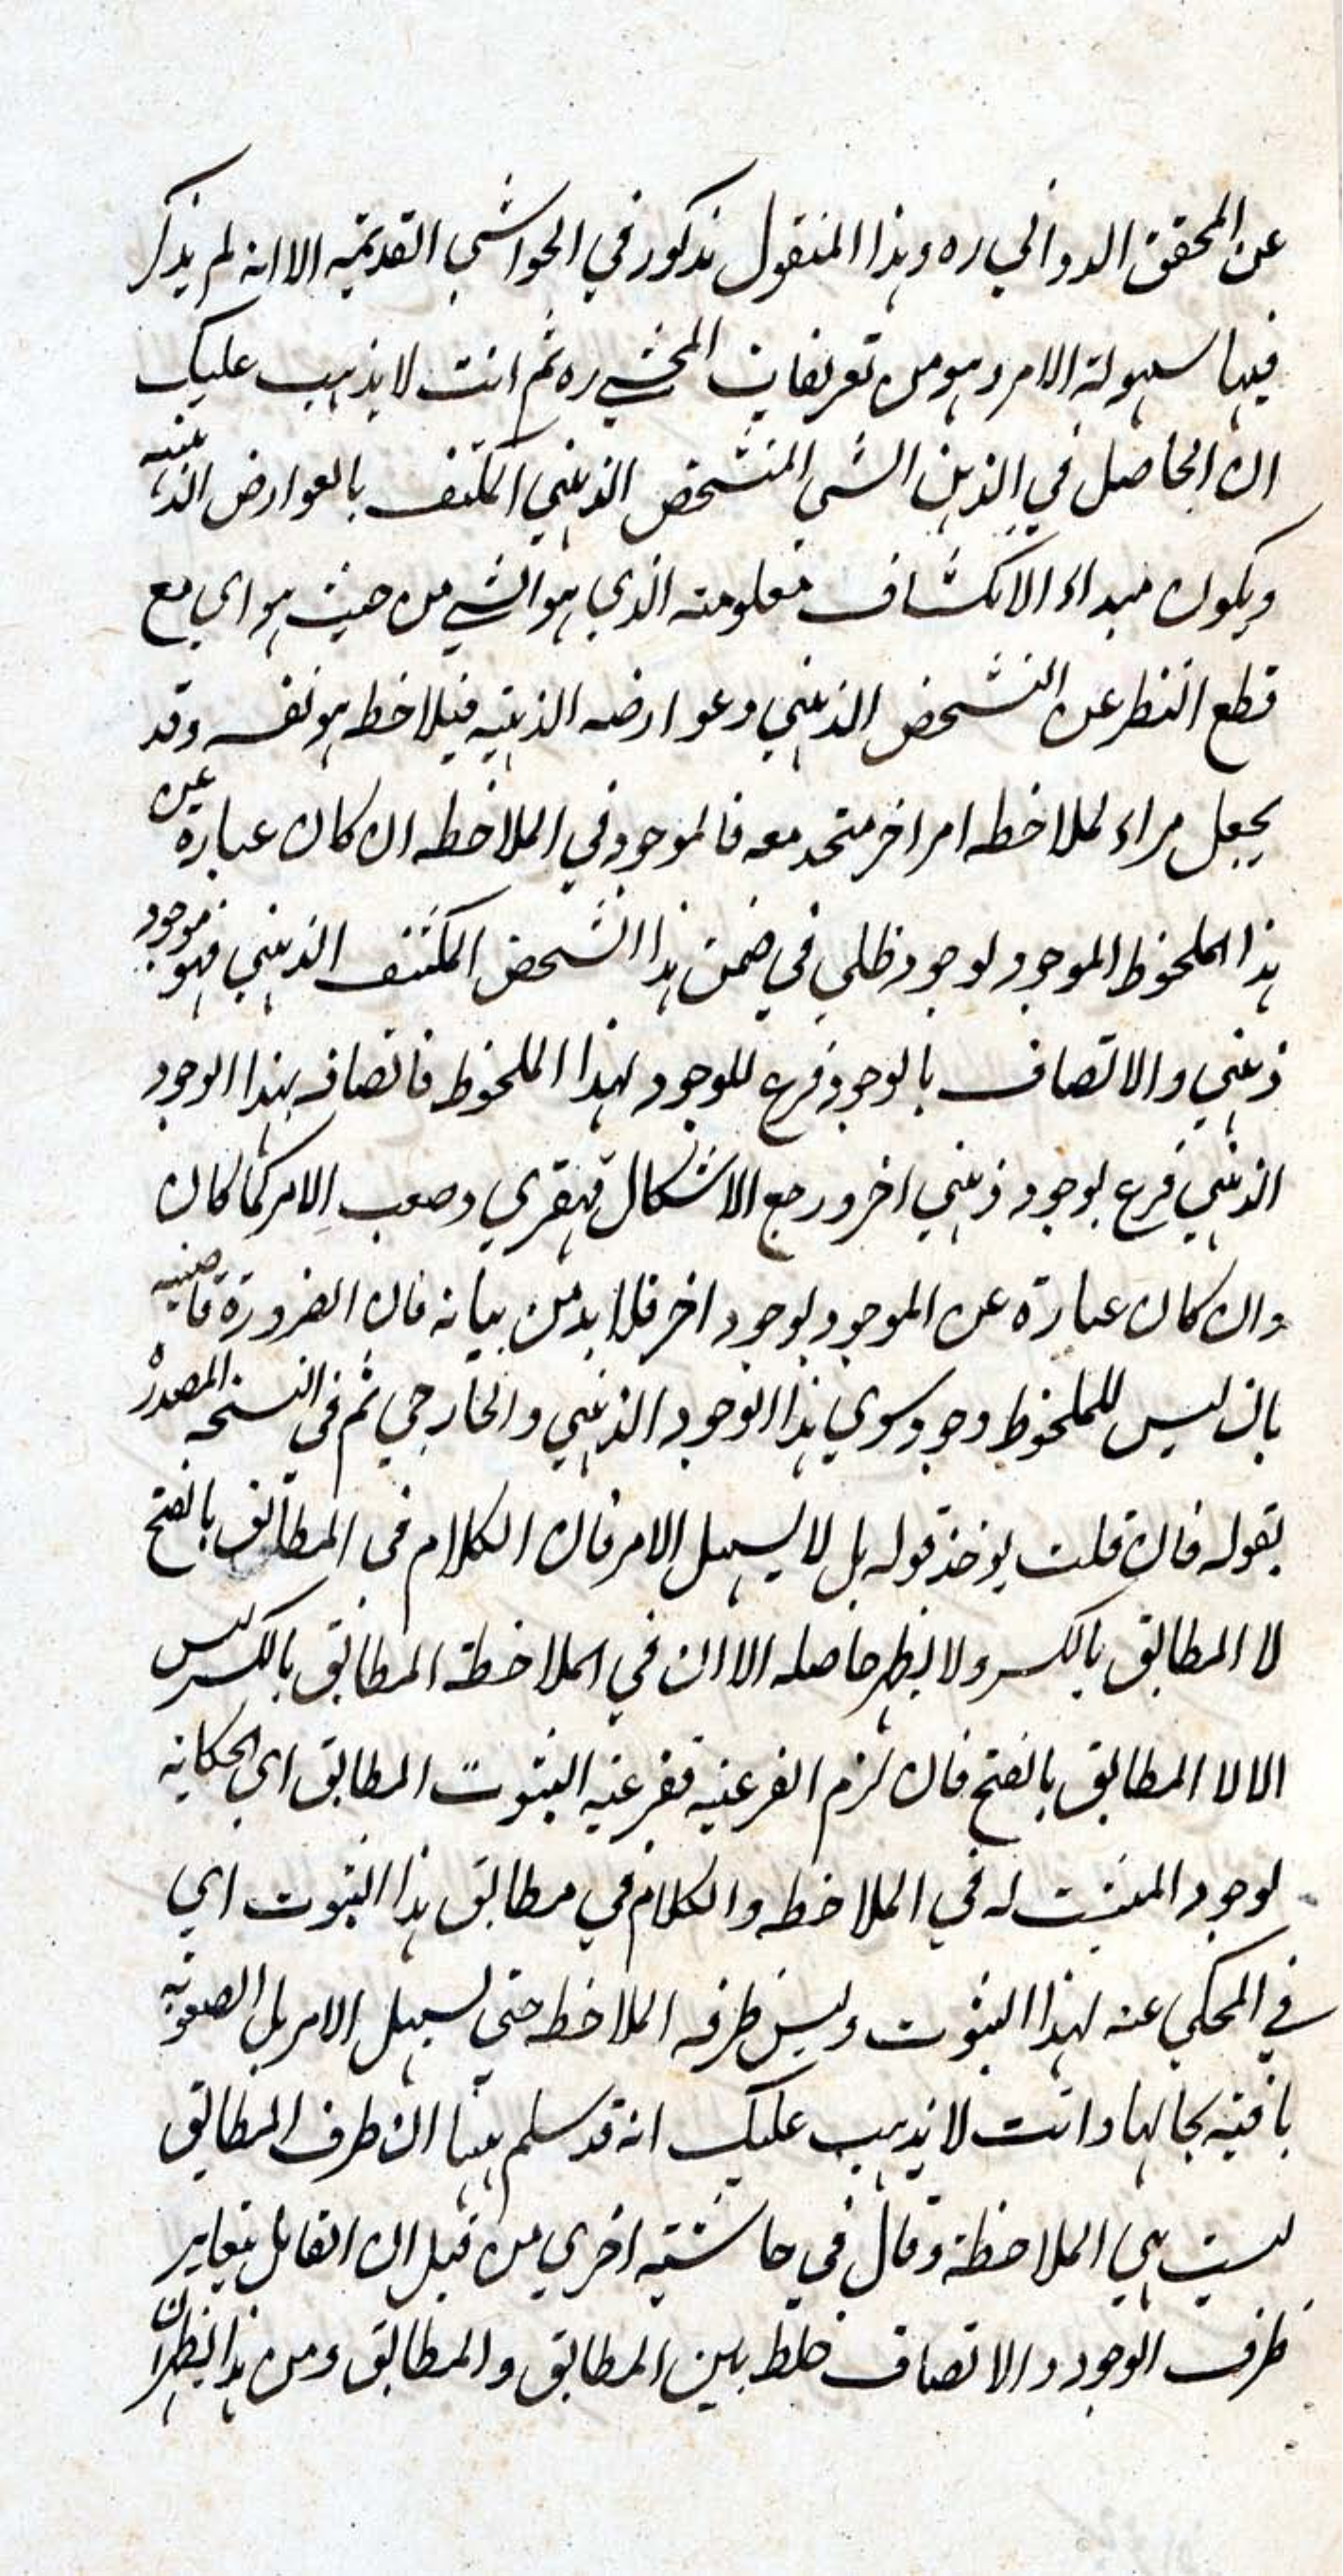 عن المحقق الدواني ره وهذا المنقول مذكور في الحواشي القديمة الا انه لم يذكر
فيها سهولة الامر وهو من تعريفات المحشي ره ثم انت لا يذهب عليك
ان الحاصل في الذهن الشي المتشخص الذهني المكتنف بالعوارض الذهنية
ويكون مبداء الانكشاف معلومه الذي هو الشي من حيث هو اي مع
قطع النظر عن التشخص الذهني وعوارضه الذهنية فيلاحظ هو نفسه وقد
يجعل مراء لملاحظه امر اخر متحد معه فالموجود في الملاحظه ان كان عبارة عن
هذا الملحوظ الموجود لوجود ظلي في ضمن هذا الشخص المكتنف الذهني فهو موجود
ذهني والاتصاف بالوجود فرع للوجود لهذا الملحوظ فاتصافه بهذا الوجود
الذهني فرع لوجود ذهني اخر ورجع الاشكال قهقري وصعب الامر كما كان
وان كان عبارة عن الموجود لوجود اخر فلا بد من بيانه فان الضرورة قاضية
بان ليس للملحوظ وجود سوي هذا الوجود الذهني والخارجي ثم في النسخة المصدر
بقوله فان قلت يوخذ قوله بل لا يسهل الامر فان الكلام في المطابق بالفتح
لا المطابق بالكسر ولا يظهر حاصله الا ان في الملاحظة المطابق بالكسر ليس
الا لا المطابق بالفتح فان لزم الفرعية ففرعية الثبوت المطابق اي الحكاية
لوجود المثبت له في الملاحظه والكلام في مطابق هذا الثبوت اي
في المحكي عنه لهذا الثبوت وليس ظرفه الملاحظه حتى يسهل الامر بل الصعوبة
باقية بحالها وانت لا يذهب عليك انه قد سلم هنا ان ظرف المطابق
ليست هي الملاحظة وقال في حاشية اخري من قبل ان القايل بتغاير
ظرف الوجود والاتصاف خلط بين المطابق والمطابق ومن هذا يظهر ان